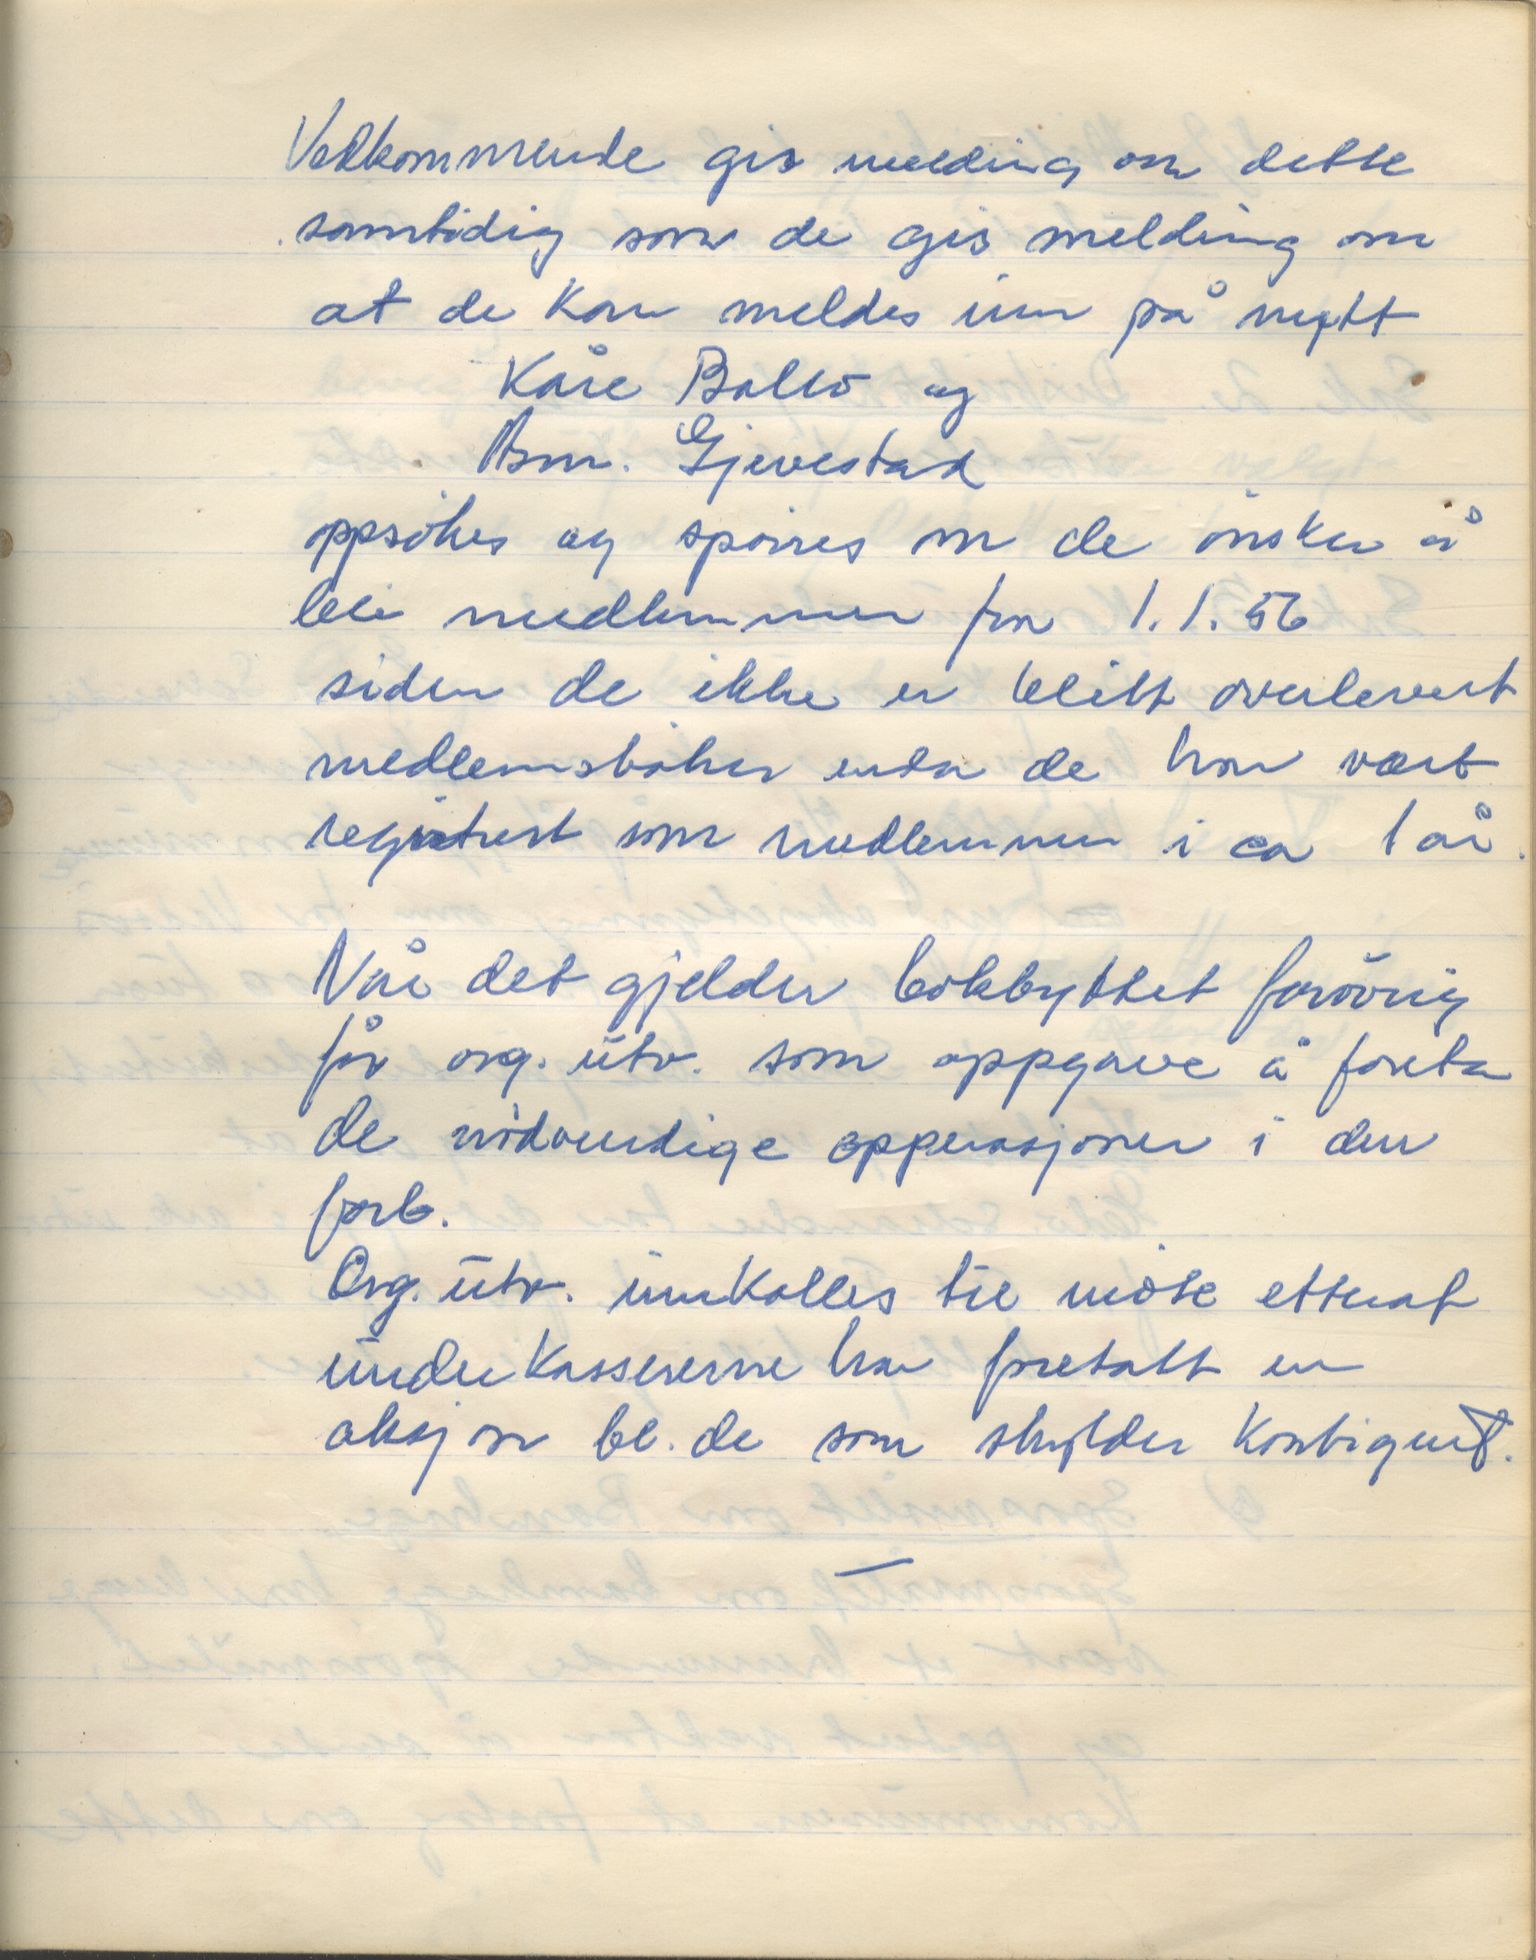 Vedkommende gis melding om dette
samtidig som de gis melding om
at de kan meldes inn på nytt
Kåre Balto og
Asm. Gjevestad
oppsökes og spörres om de önsker å
bli medlemmer fra 1.1.56
siden de ikke er blitt overlevert
medlemsböker enda de har vært
registrert som medlemmer i ca 1 år.
Når det gjelder bokbyttet forövrig
får org. utv. som oppgave å foreta
de nödvendige opperasjoner i den
forb.
Org. utv. innkalles til möte etterat
underkassererne har foretatt en
aksjon bl. de som skylder kontigent.